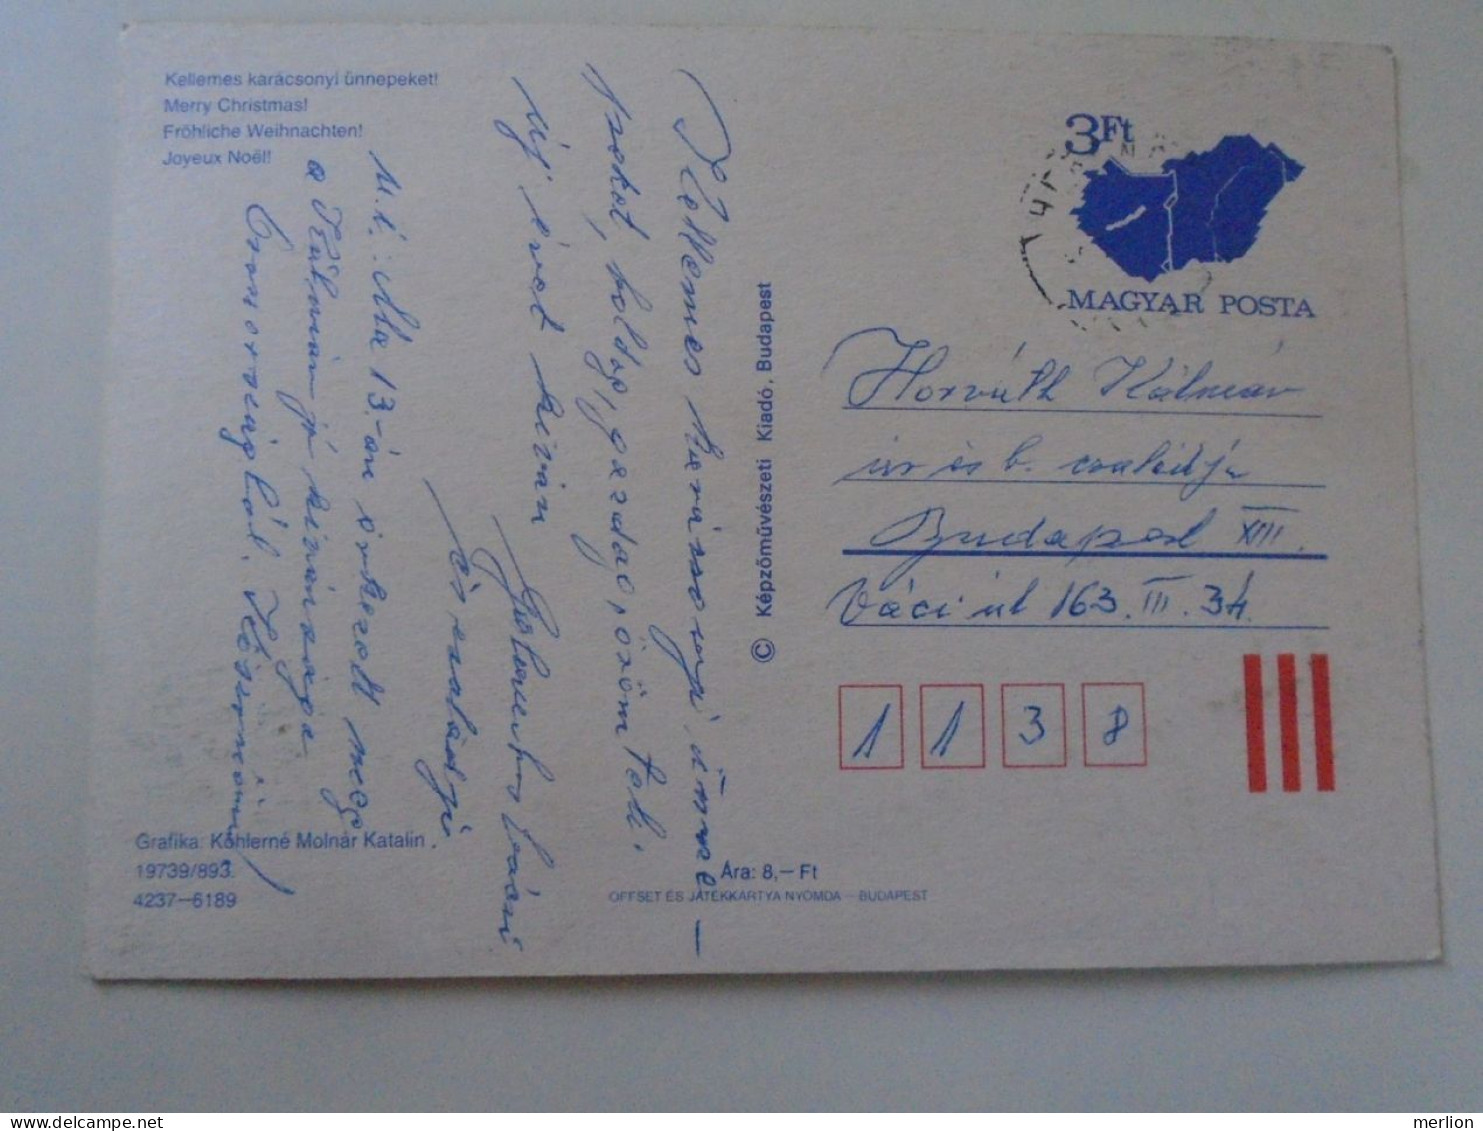 Kellemes karácsonyi ünnepeket!
Merry Christmas!
Fröhliche Weihnachten!
Joyeux Noël!
Kellemes karácsonyi ünne-
peket, boldog, gazdag, örömteli
új évet kíván
és családja
U.i. Ma 13.-án érkezett meg
a Kálmán jó kívánsága
Olaszországból. Köszönöm
Grafika: Köhlerné Molnár Katalin
19739/893.
4237—6189
Ára: 8,— Ft
OFFSET ÉS JÁTÉKKÁRTYA NYOMDA — BUDAPEST
© Képzőművészeti Kiadó, Budapest
3Ft
MAGYAR POSTA
Horváth Kálmán
úr és b. családja
Budapest XIII.
Váci út 163. III. 34.
1 1 3 8
merlion